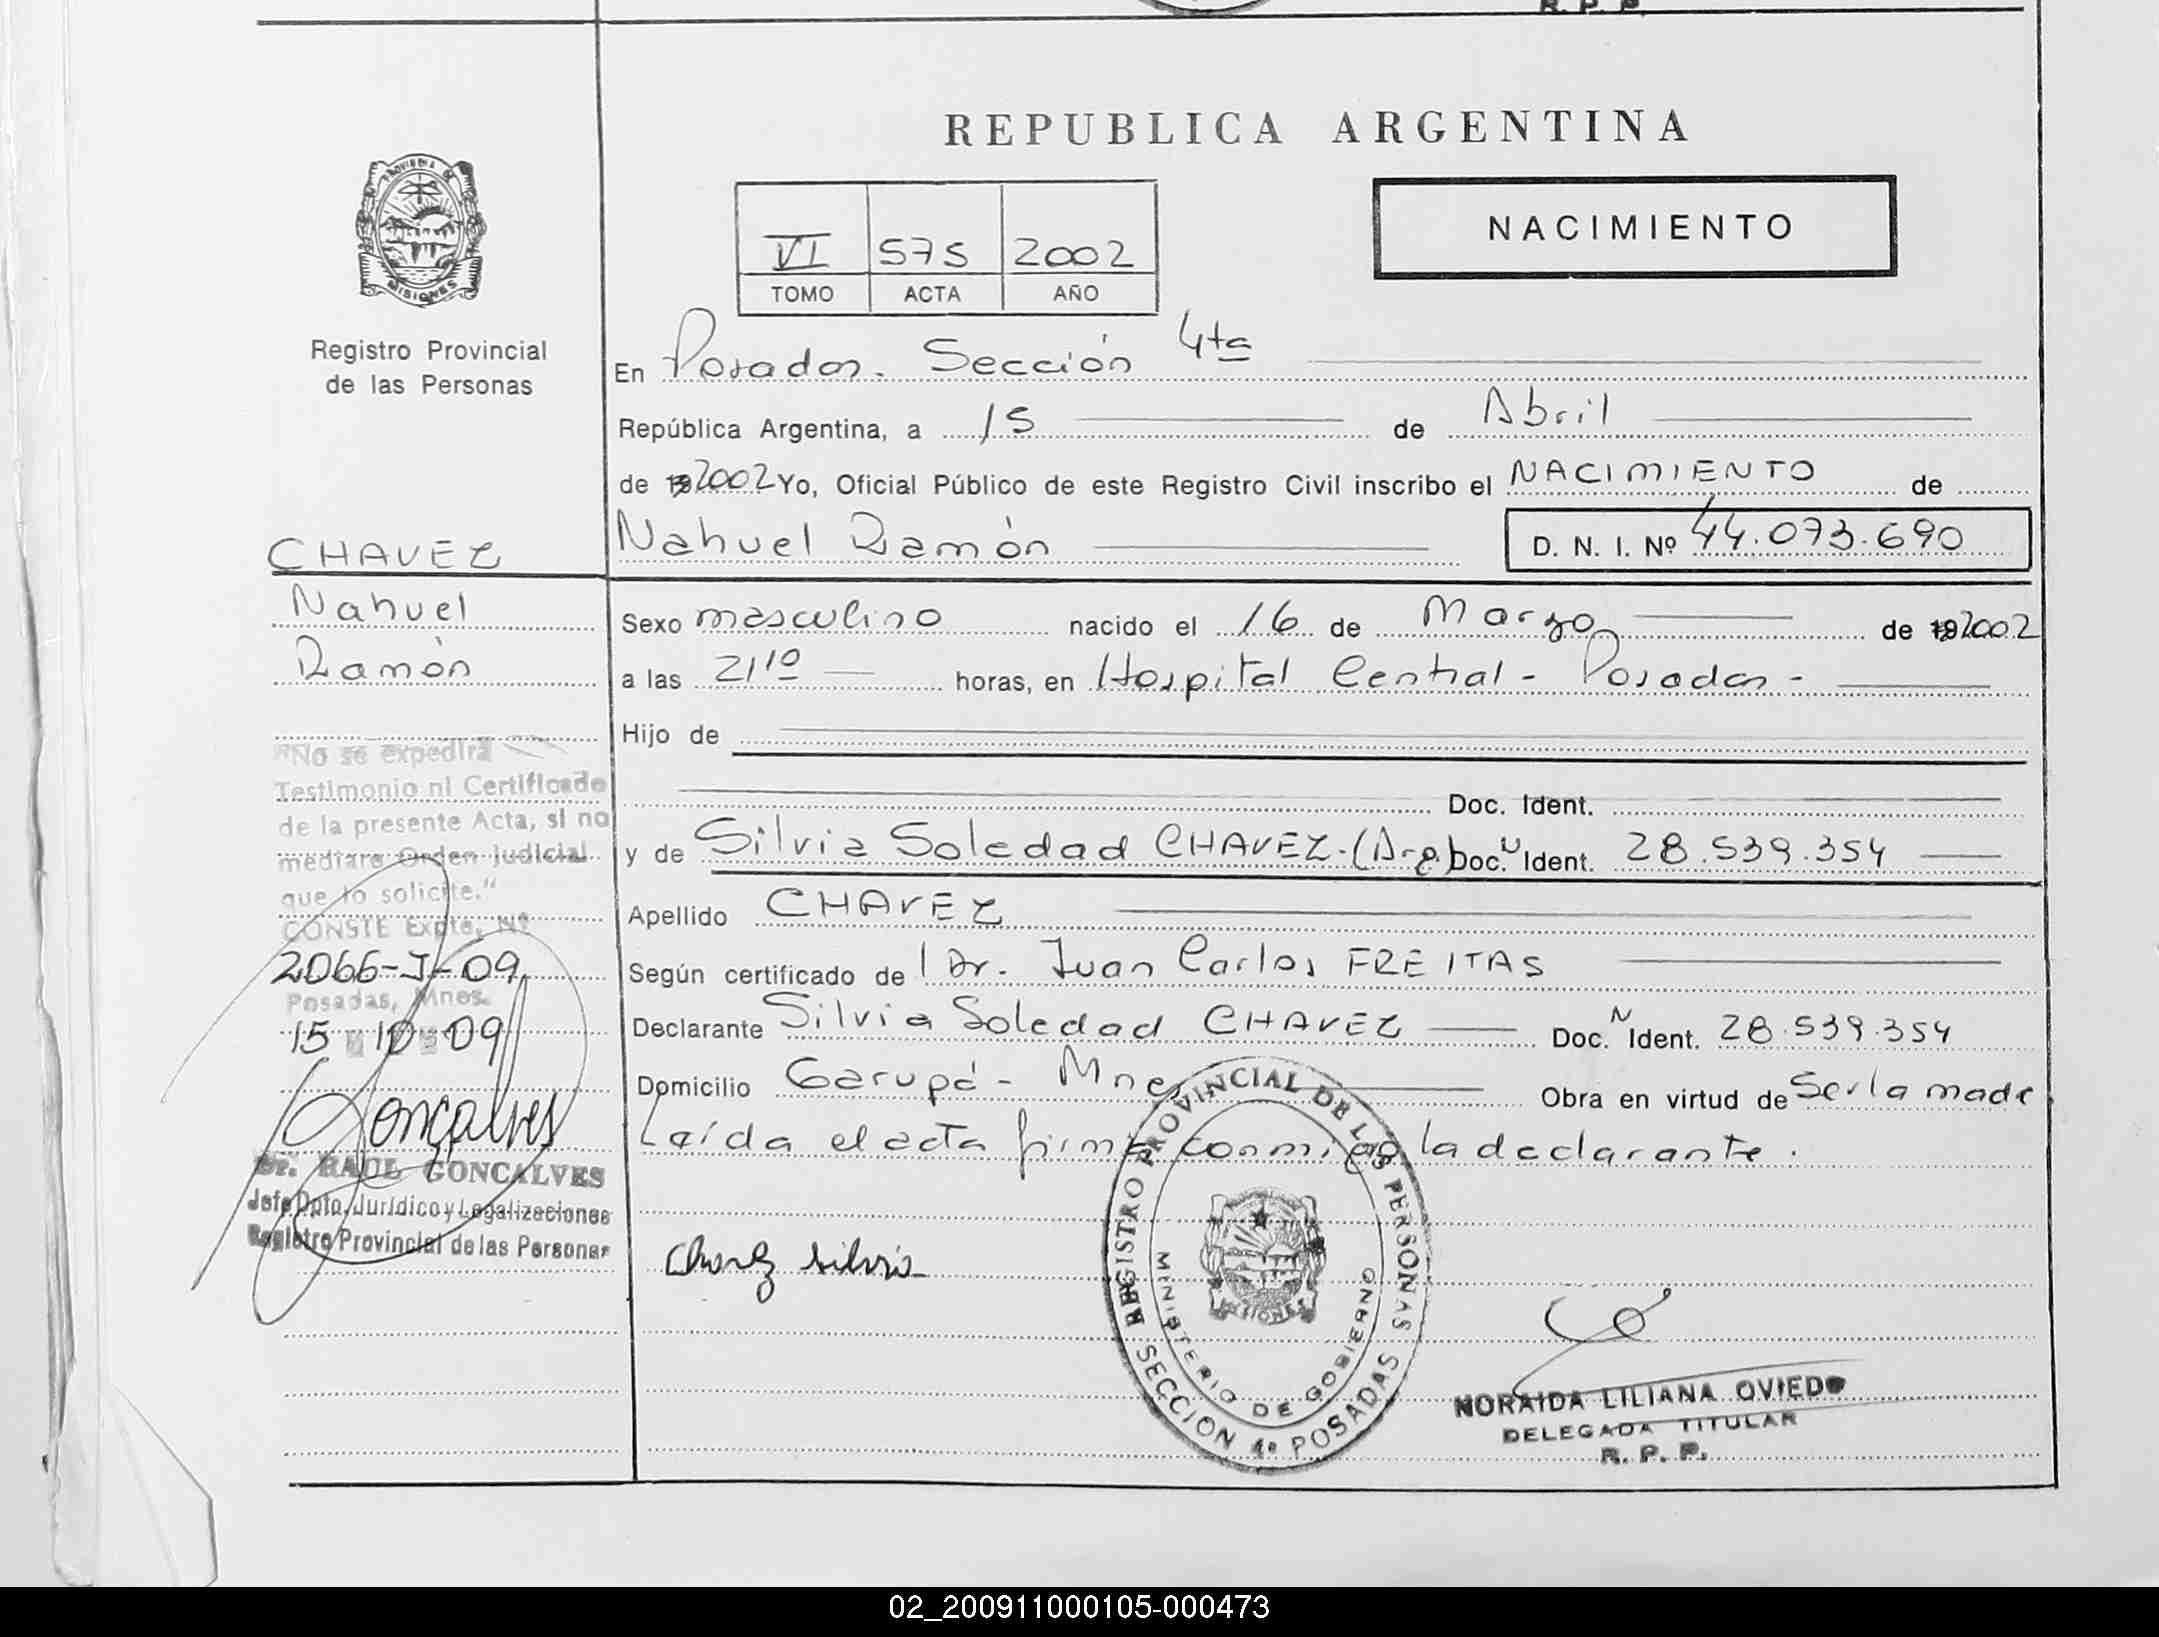 R. P. P.
REPUBLICA ARGENTINA
PROVINCIA DE
MISIONES
Registro Provincial
de las Personas
VI 575 2002
TOMO ACTA AÑO
NACIMIENTO
En Posadas. Sección 4ta
República Argentina, a 15 de Abril
de 19 2002 Yo, Oficial Público de este Registro Civil inscribo el NACIMIENTO de
Nahuel Ramón D. N. I. Nº 44.073.690
CHAVEZ
Nahuel
Ramón
Sexo masculino nacido el 16 de Marzo de 19 2002
a las 21 10 horas, en Hospital Central - Posadas -
Hijo de
Doc. Ident.
y de Silvia Soledad CHAVEZ - (Arg.) Doc. N Ident. 28.539.354
Apellido CHAVEZ
Según certificado de Dr. Juan Carlos FREITAS
Declarante Silvia Soledad CHAVEZ Doc. N Ident. 28.539.354
Domicilio Garupá - Mnes Obra en virtud de Ser la madre
Leída el acta firma conmigo la declarante.
"No se expedirá
Testimonio ni Certificado
de la presente Acta, si no
mediare Orden judicial
que lo solicite."
CONSTE Expte. Nº
2066-J-09
Posadas, Mnes.
15 10 09
Goncalves
Dr. RAUL GONCALVES
Jefe Dpto. Jurídico y Legalizaciones
Registro Provincial de las Personas
Chavez Silvia
REGISTRO PROVINCIAL DE LAS PERSONAS
MINISTERIO DE GOBIERNO
SECCION 4º POSADAS
MISIONES
NORAIDA LILIANA OVIEDO
DELEGADA TITULAR
R. P. P.
02_200911000105-000473